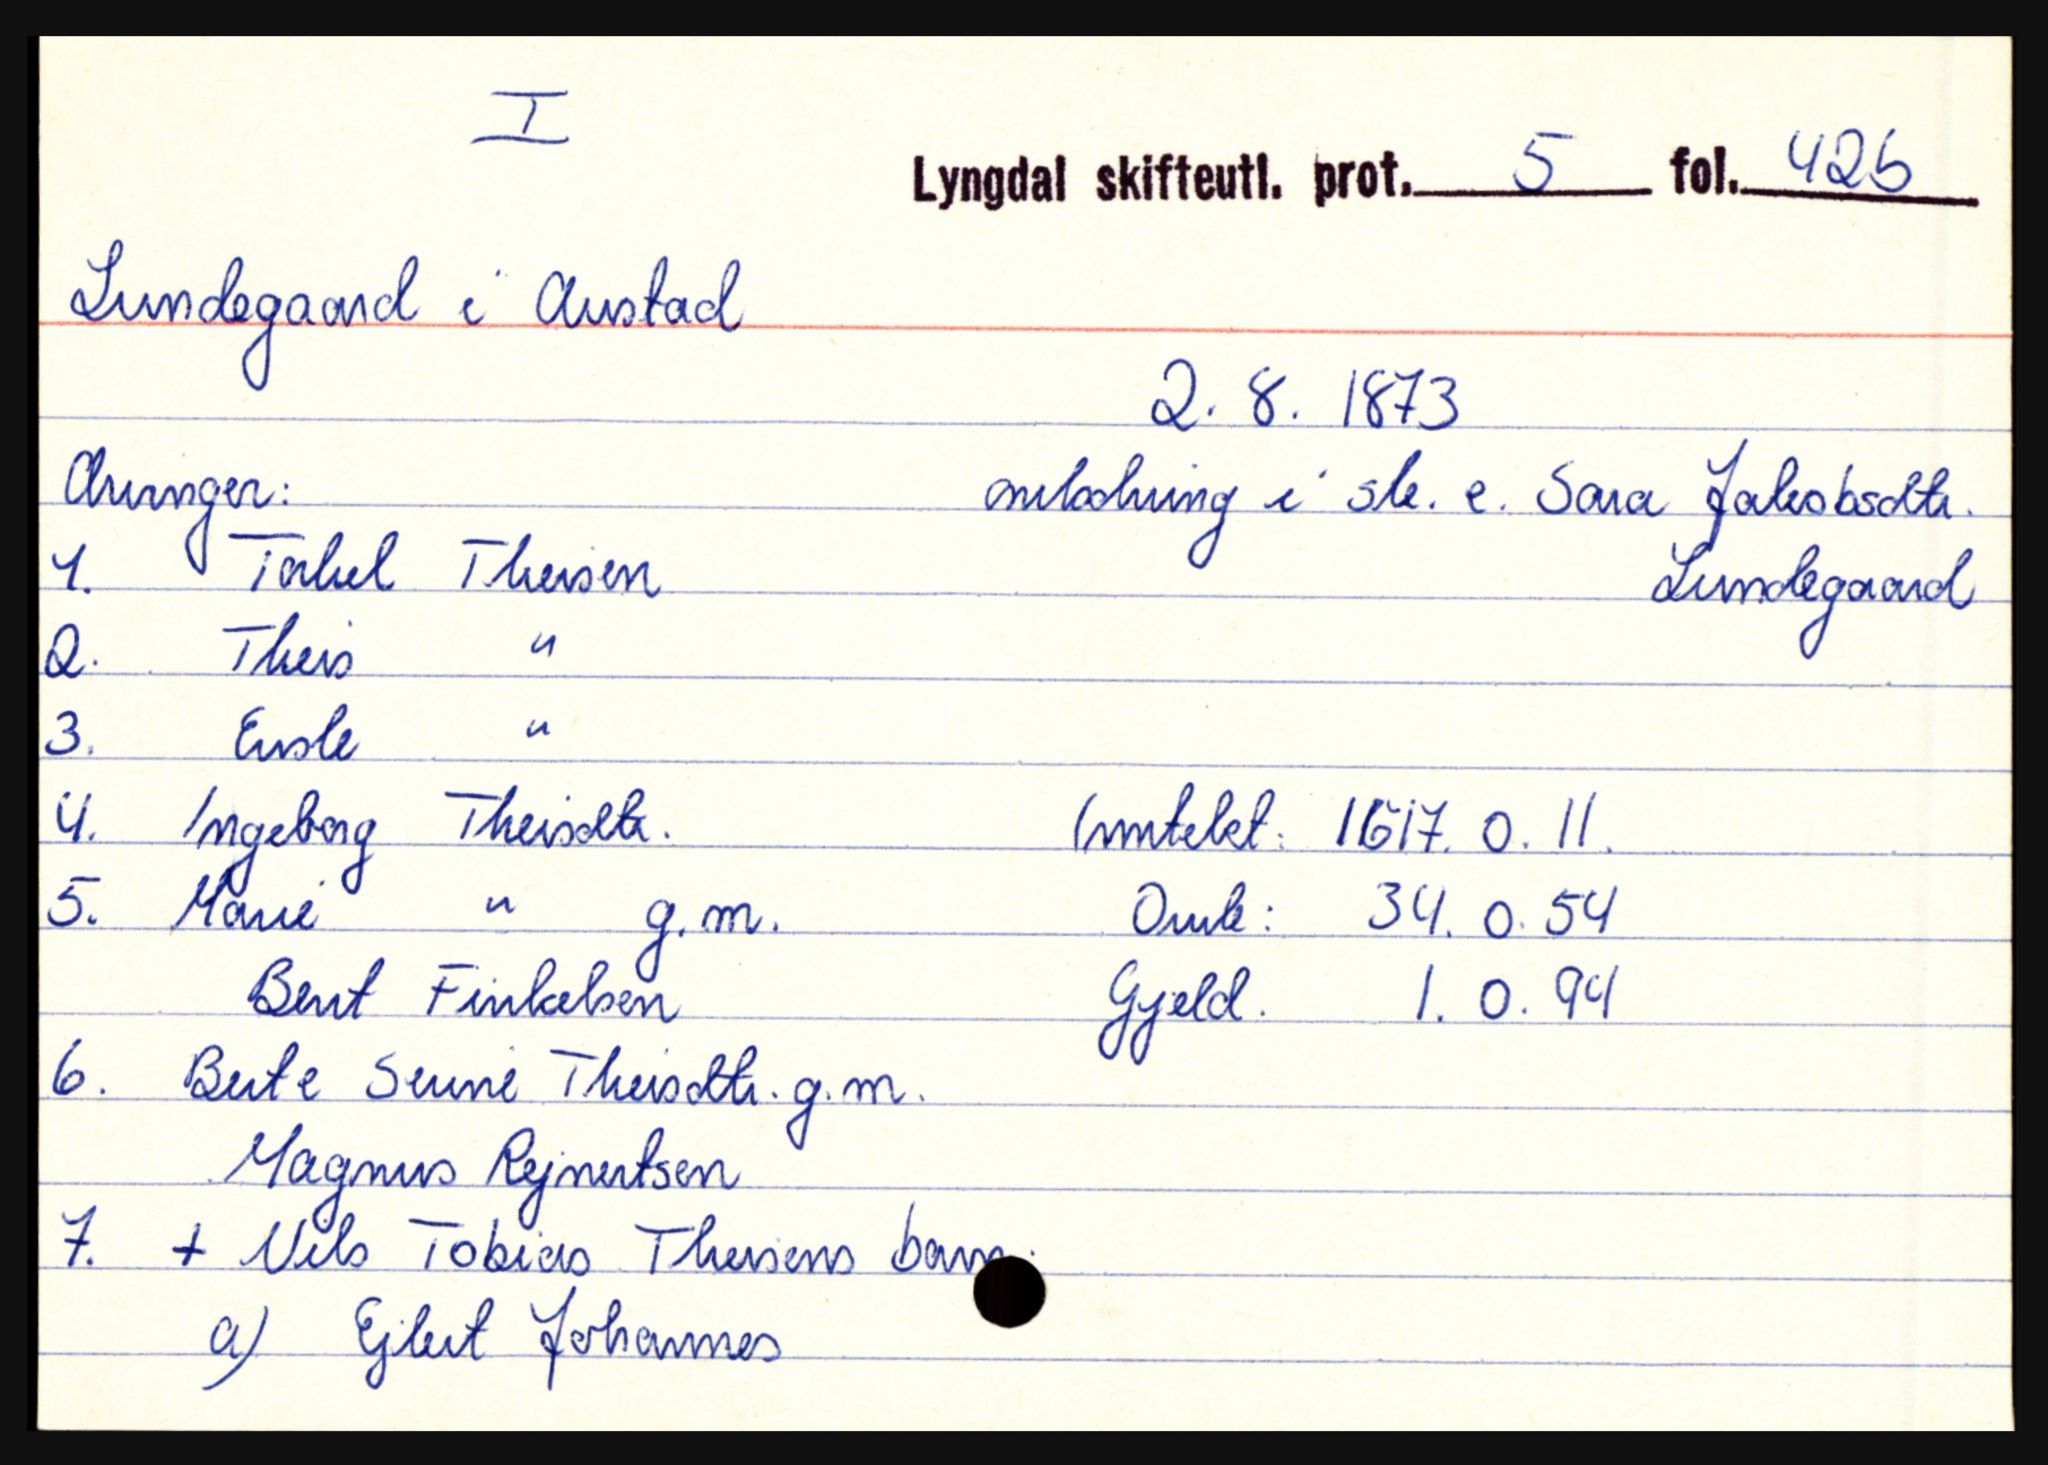 I
Lyngdal skifteutl. prot. 5 fol. 426
Lundegaard i Austad
2. 8. 1873
Arvinger:
anledning i sk. e. Sara Jakobsdtr.
1. Torkel Theisen
Lundegaard
2. Theis "
3. Enok "
4. Ingeborg Theisdtr.
Inntekt: 1617. 0. 11.
5. Marie " g.m.
Omk: 34. 0. 54
Bent Finkelsen
Gjeld. 1. 0. 94
6. Berte Serine Theisdtr. g.m.
Magnus Rejnertsen
7. + Nils Tobias Theisens barn:
a) Ejlert Johannes